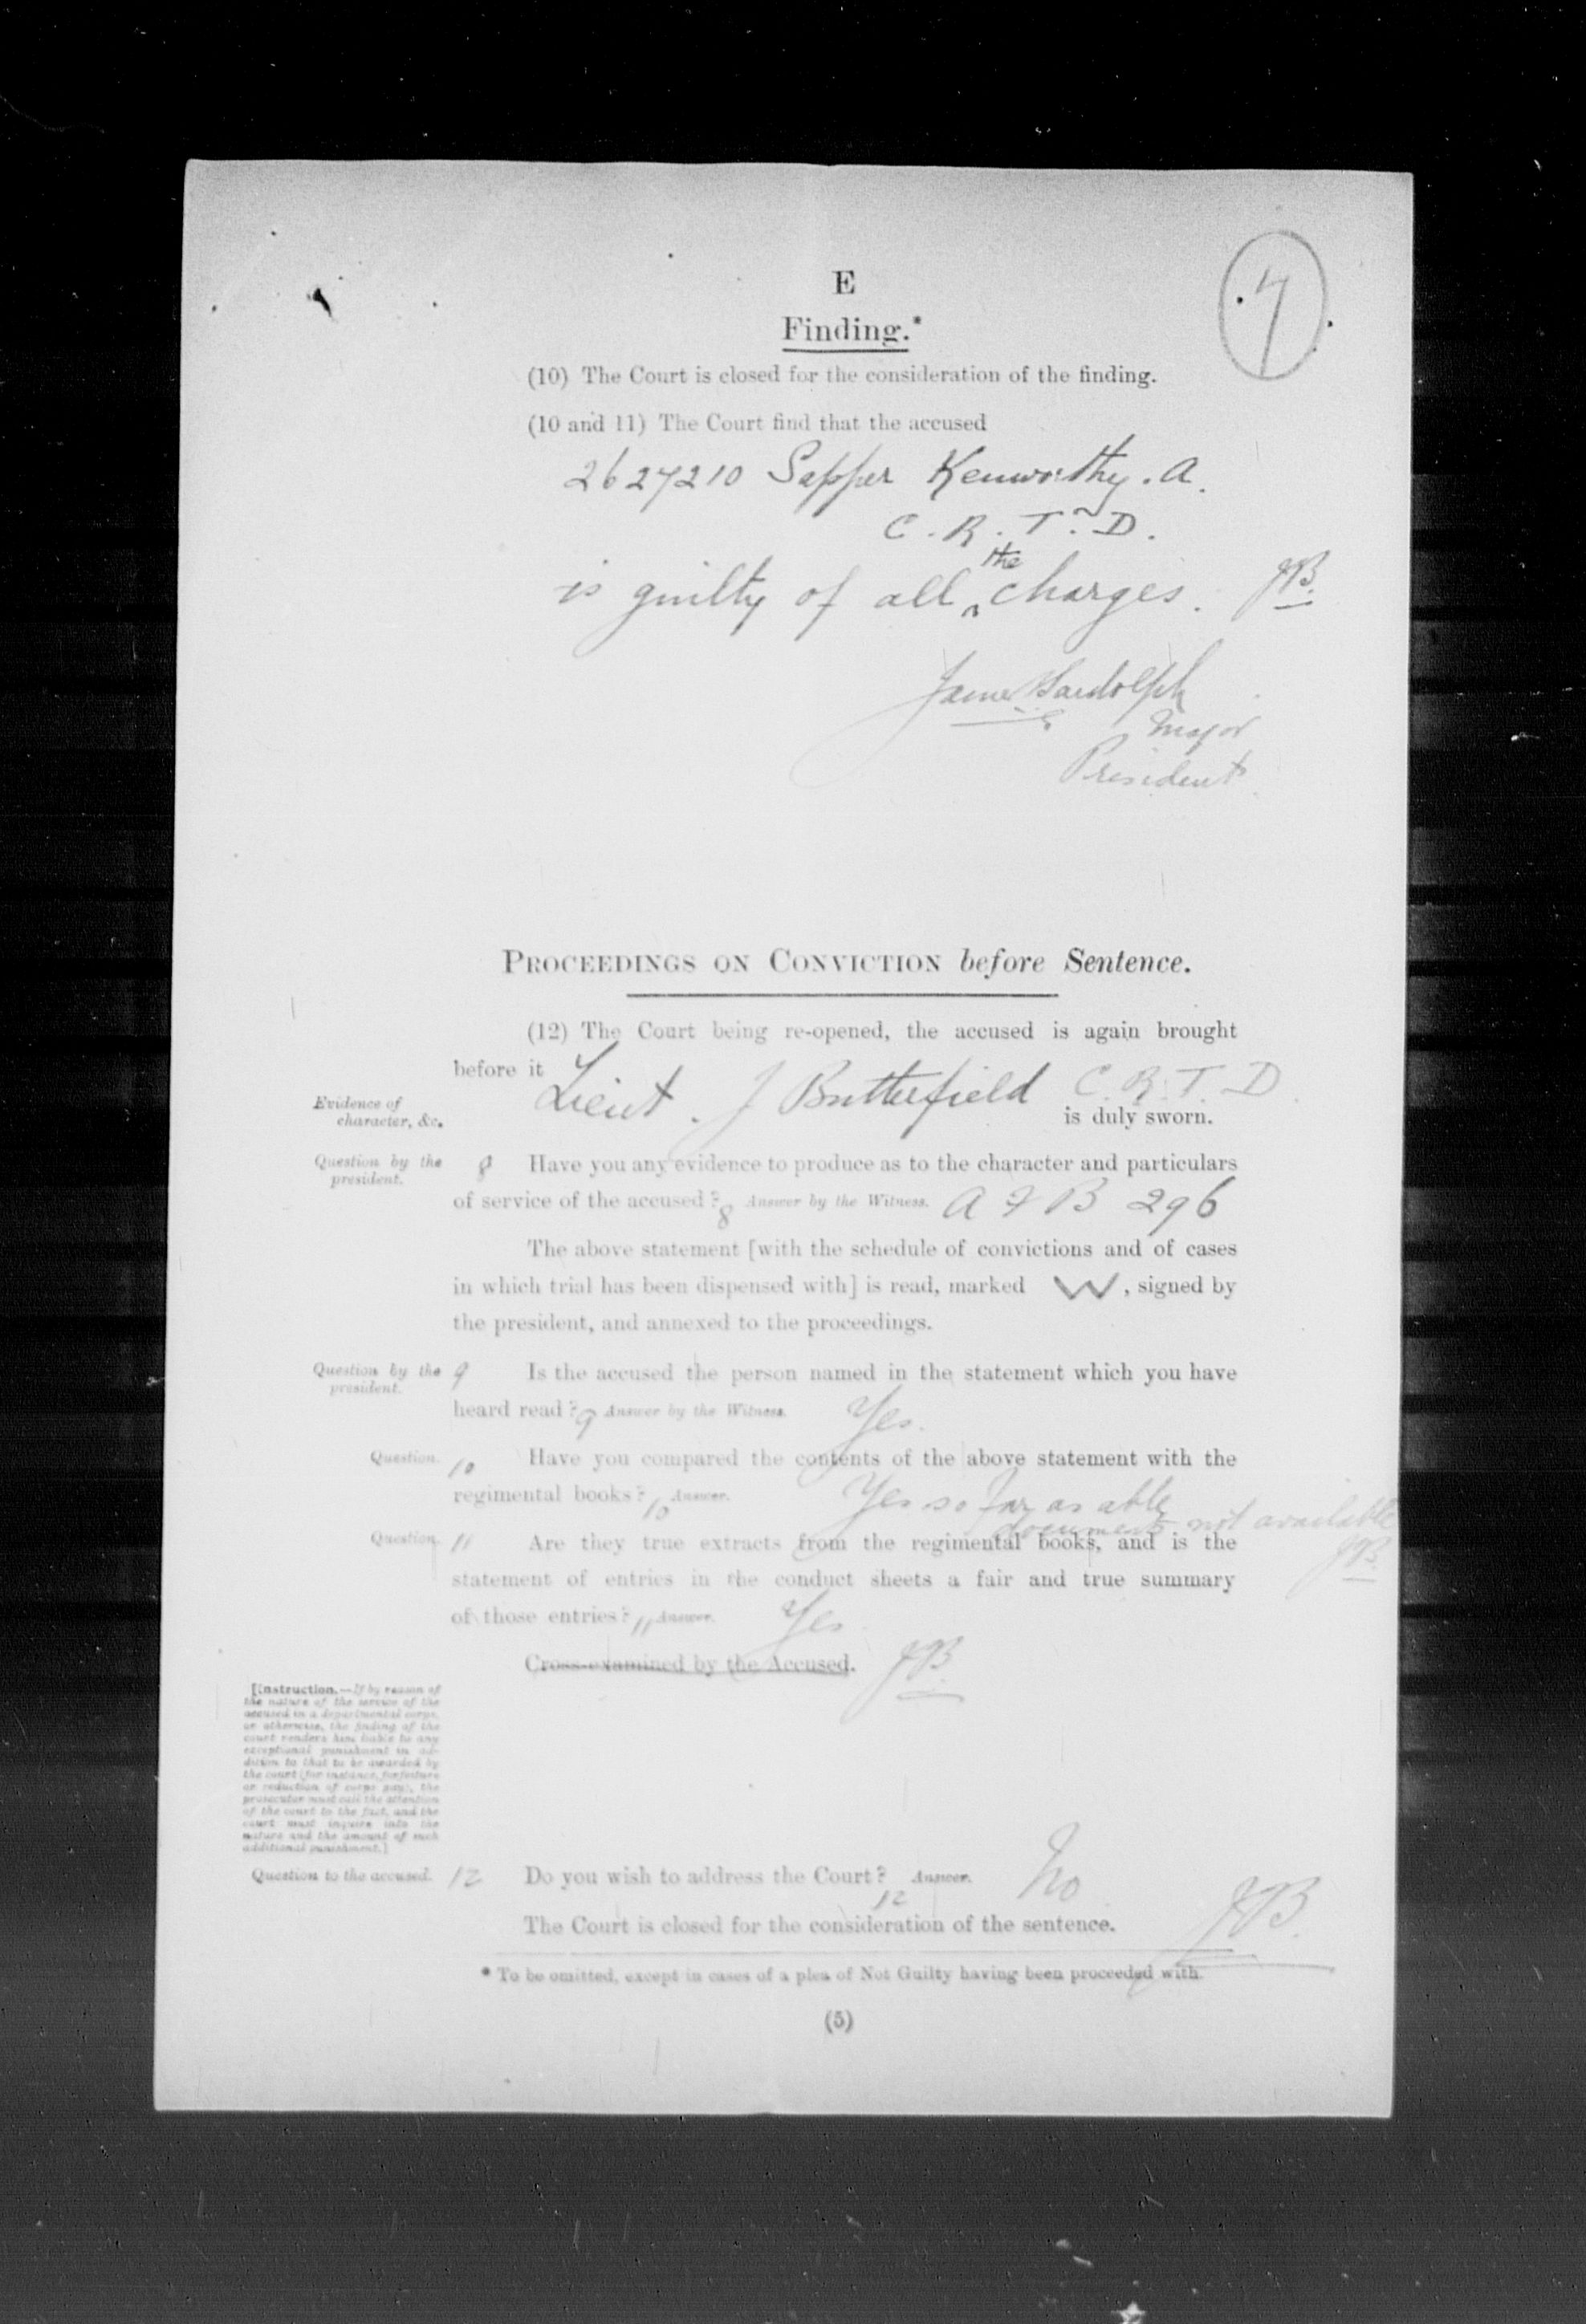 E
7
Finding.*
(10) The Court is closed for the consideration of the finding.
(10 and 11) The Court find that the accused
2627210 Sapper Kenworthy. A.
C. R. T. D.
the
is guilty of all ‸ charges. JB.
Major
President
PROCEEDINGS ON CONVICTION before Sentence.
(12) The Court being re-opened, the accused is again brought
before it
Lieut. J Butterfield C. R. T. D.
Evidence of
character, &c.
is duly sworn.
Question by the 8 Have you any evidence to produce as to the character and particulars
president.
of service of the accused? 8 Answer by the Witness. A F B 296
The above statement [with the schedule of convictions and of cases
in which trial has been dispensed with] is read, marked W, signed by
the president, and annexed to the proceedings.
Question by the 9 Is the accused the person named in the statement which you have
president.
heard read? 9 Answer by the Witness. Yes.
Question. 10 Have you compared the contents of the above statement with the
regimental books? 10 Answer. Yes so far as able
documents not available
Question. 11 Are they true extracts from the regimental books, and is the
JB.
statement of entries in the conduct sheets a fair and true summary
of those entries? 11 Answer. Yes
Cross-examined by the Accused. JB.
[Instruction.—If by reason of
the nature of the service of the
accused in a departmental corps,
or otherwise, the finding of the
court renders him liable to any
exceptional punishment in ad-
dition to that to be awarded by
the court (for instance, forfeiture
or reduction of corps pay), the
prosecutor must call the attention
of the court to the fact, and the
court must inquire into the
nature and the amount of such
additional punishment.]
Question to the accused. 12 Do you wish to address the Court? 12 Answer. No
The Court is closed for the consideration of the sentence. JB.
* To be omitted, except in cases of a plea of Not Guilty having been proceeded with.
(5)